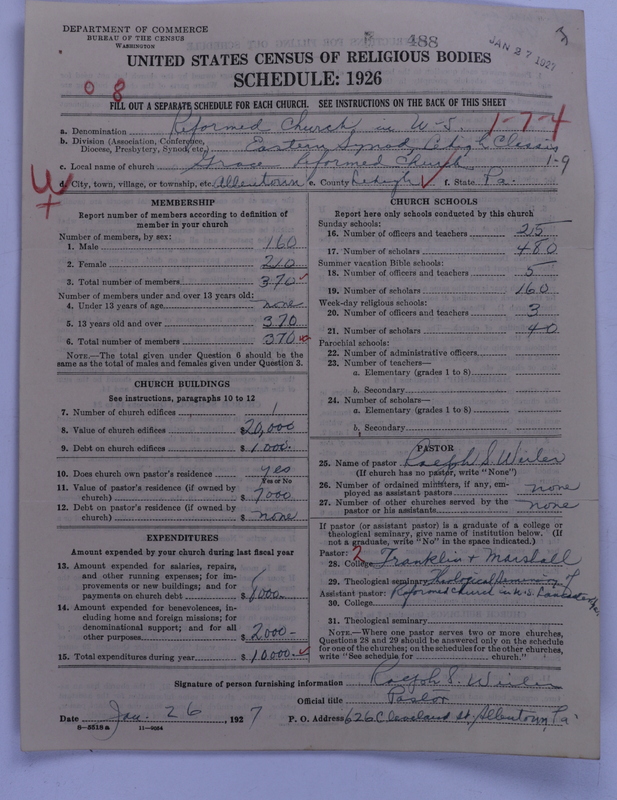 DEPARTMENT OF COMMERCE
BUREAU OF THE CENSUS
WASHINGTON
488
JAN 27 1927
UNITED STATES CENSUS OF RELIGIOUS BODIES
SCHEDULE: 1926
0 8
FILL OUT A SEPARATE SCHEDULE FOR EACH CHURCH. SEE INSTRUCTIONS ON THE BACK OF THIS SHEET
1-7-4
a. Denomination Reformed Church in U.S.
b. Division (Association, Conference, Diocese, Presbytery, Synod, etc.) Eastern Synod Lehigh Classis
c. Local name of church Grace Reformed Church 1-9
d. City, town, village, or township, etc. Allentown e. County Lehigh f. State Pa.
MEMBERSHIP
Report number of members according to definition of
member in your church
Number of members, by sex:
1. Male 160
2. Female 210
3. Total number of members 370
Number of members under and over 13 years old:
4. Under 13 years of age none
5. 13 years old and over 370
6. Total number of members 370
NOTE.—The total given under Question 6 should be
same as the total of males and females given under Question 3.
CHURCH BUILDINGS
See instructions, paragraphs 10 to 12
7. Number of church edifices 1
8. Value of church edifices $20,000
9. Debt on church edifices $1000.
10. Does church own pastor's residence yes
Yes or No
11. Value of pastor's residence (if owned by
church) $7000
12. Debt on pastor's residence (if owned by
church) $none
EXPENDITURES
Amount expended by your church during last fiscal year
13. Amount expended for salaries, repairs,
and other running expenses; for im-
provements or new buildings; and for
payments on church debt $8000.
14. Amount expended for benevolences, in-
cluding home and foreign missions; for
denominational support; and for all
other purposes $2000-
15. Total expenditures during year $10000.
CHURCH SCHOOLS
Report here only schools conducted by this church
Sunday schools:
16. Number of officers and teachers 25
17. Number of scholars 480
Summer vacation Bible schools:
18. Number of officers and teachers 5
19. Number of scholars 160
Week-day religious schools:
20. Number of officers and teachers 3
21. Number of scholars 40
Parochial schools:
22. Number of administrative officers
23. Number of teachers—
a. Elementary (grades 1 to 8)
b. Secondary
24. Number of scholars—
a. Elementary (grades 1 to 8)
b. Secondary
PASTOR
25. Name of pastor Ralph S. Weiler
(If church has no pastor, write "None")
26. Number of ordained ministers, if any, em-
ployed as assistant pastors none
27. Number of other churches served by the
pastor or his assistants none
If pastor (or assistant pastor) is a graduate of a college or
theological seminary, give name of institution below. (If
not a graduate, write "No" in the space indicated.)
Pastor: 2
28. College Franklin & Marshall
29. Theological seminary Theological Seminary of
Assistant pastor: Reformed Church in U.S. Lancaster, Pa.
30. College
31. Theological seminary
NOTE.—Where one pastor serves two or more churches,
Questions 28 and 29 should be answered only on the schedule
for one of the churches; on the schedules for the other churches,
write "See schedule for church."
Signature of person furnishing information Ralph S. Weiler
Official title Pastor
Date Jan. 26, 1927 P. O. Address 626 Cleveland St, Allentown, Pa
8-5518a 11-9064